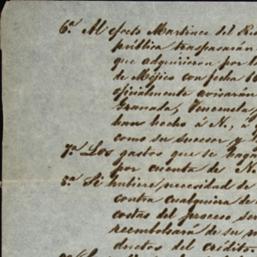 6.ª Al efecto Martinez del Rio
pública traspasarán
que adquirieron por la
de Méjico con fecha 16
oficialmente avisarán
Granada, Venezuela,
han hecho á N., á
como su sucesor y
7.ª Los gastos que se hagan
por cuenta de N.
8.ª Si hubiere necesidad de
contra cualquiera de
costas del proceso ser
reembolsará de su
ductos del crédito.